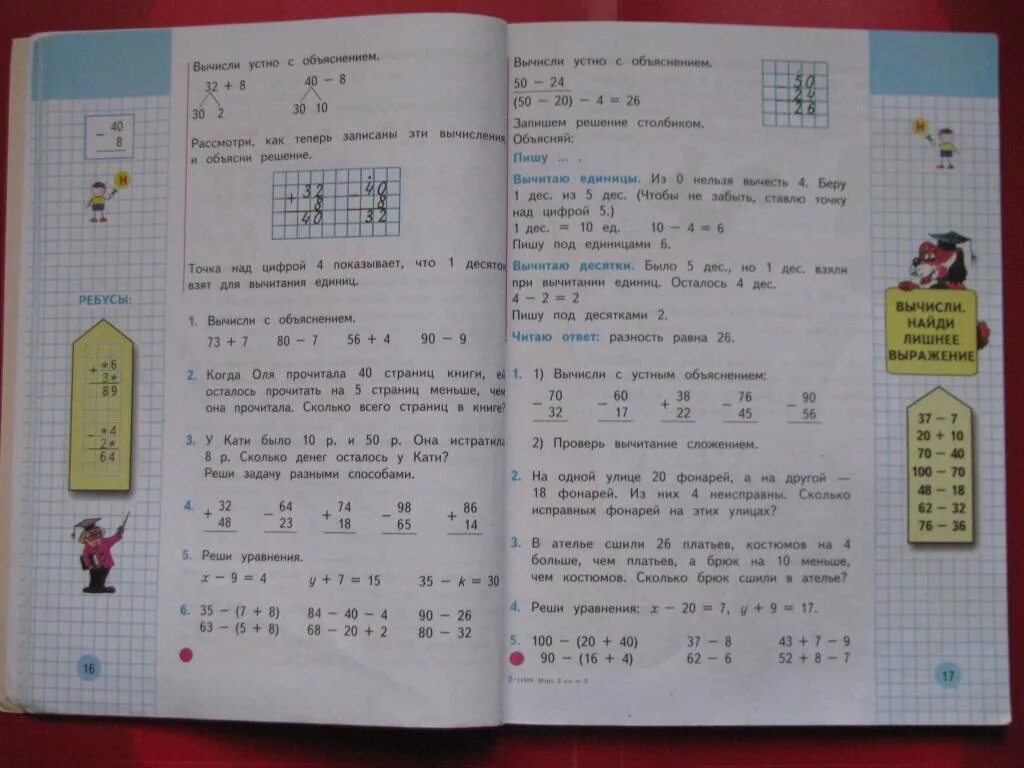 Вычисли устно с объяснением.
32 + 8 40 − 8
30 2 30 10
Рассмотри, как теперь записаны эти вычисления
и объясни решение.
+ 32 − 40
8 8
40 32
Точка над цифрой 4 показывает, что 1 десяток
взят для вычитания единиц.
1. Вычисли с объяснением.
73 + 7 80 − 7 56 + 4 90 − 9
2. Когда Оля прочитала 40 страниц книги, ей
осталось прочитать на 5 страниц меньше, чем
она прочитала. Сколько всего страниц в книге?
3. У Кати было 10 р. и 50 р. Она истратила
8 р. Сколько денег осталось у Кати?
Реши задачу разными способами.
4. + 32 − 64 + 74 − 98 + 86
48 23 18 65 14
5. Реши уравнения.
x − 9 = 4 y + 7 = 15 35 − k = 30
6. 35 − (7 + 8) 84 − 40 − 4 90 − 26
63 − (5 + 8) 68 − 20 + 2 80 − 32
− 40
8
Н
РЕБУСЫ:
+ *6
3*
89
− *4
2*
64
16
Вычисли устно с объяснением.
50 − 24
(50 − 20) − 4 = 26
− 50
24
26
Запишем решение столбиком.
Объясняй:
Пишу ... .
Вычитаю единицы. Из 0 нельзя вычесть 4. Беру
1 дес. из 5 дес. (Чтобы не забыть, ставлю точку
над цифрой 5.)
1 дес. = 10 ед. 10 − 4 = 6
Пишу под единицами 6.
Вычитаю десятки. Было 5 дес., но 1 дес. взяли
при вычитании единиц. Осталось 4 дес.
4 − 2 = 2
Пишу под десятками 2.
Читаю ответ: разность равна 26.
1. 1) Вычисли с устным объяснением:
− 70 − 60 + 38 − 76 − 90
32 17 22 45 56
2) Проверь вычитание сложением.
2. На одной улице 20 фонарей, а на другой —
18 фонарей. Из них 4 неисправны. Сколько
исправных фонарей на этих улицах?
3. В ателье сшили 26 платьев, костюмов на 4
больше, чем платьев, а брюк на 10 меньше,
чем костюмов. Сколько брюк сшили в ателье?
4. Реши уравнения: x − 20 = 7, y + 9 = 17.
5. 100 − (20 + 40) 37 − 8 43 + 7 − 9
90 − (16 + 4) 62 − 6 52 + 8 − 7
Н
ВЫЧИСЛИ.
НАЙДИ
ЛИШНЕЕ
ВЫРАЖЕНИЕ
37 − 7
20 + 10
70 − 40
100 − 70
48 − 18
62 − 32
76 − 36
17